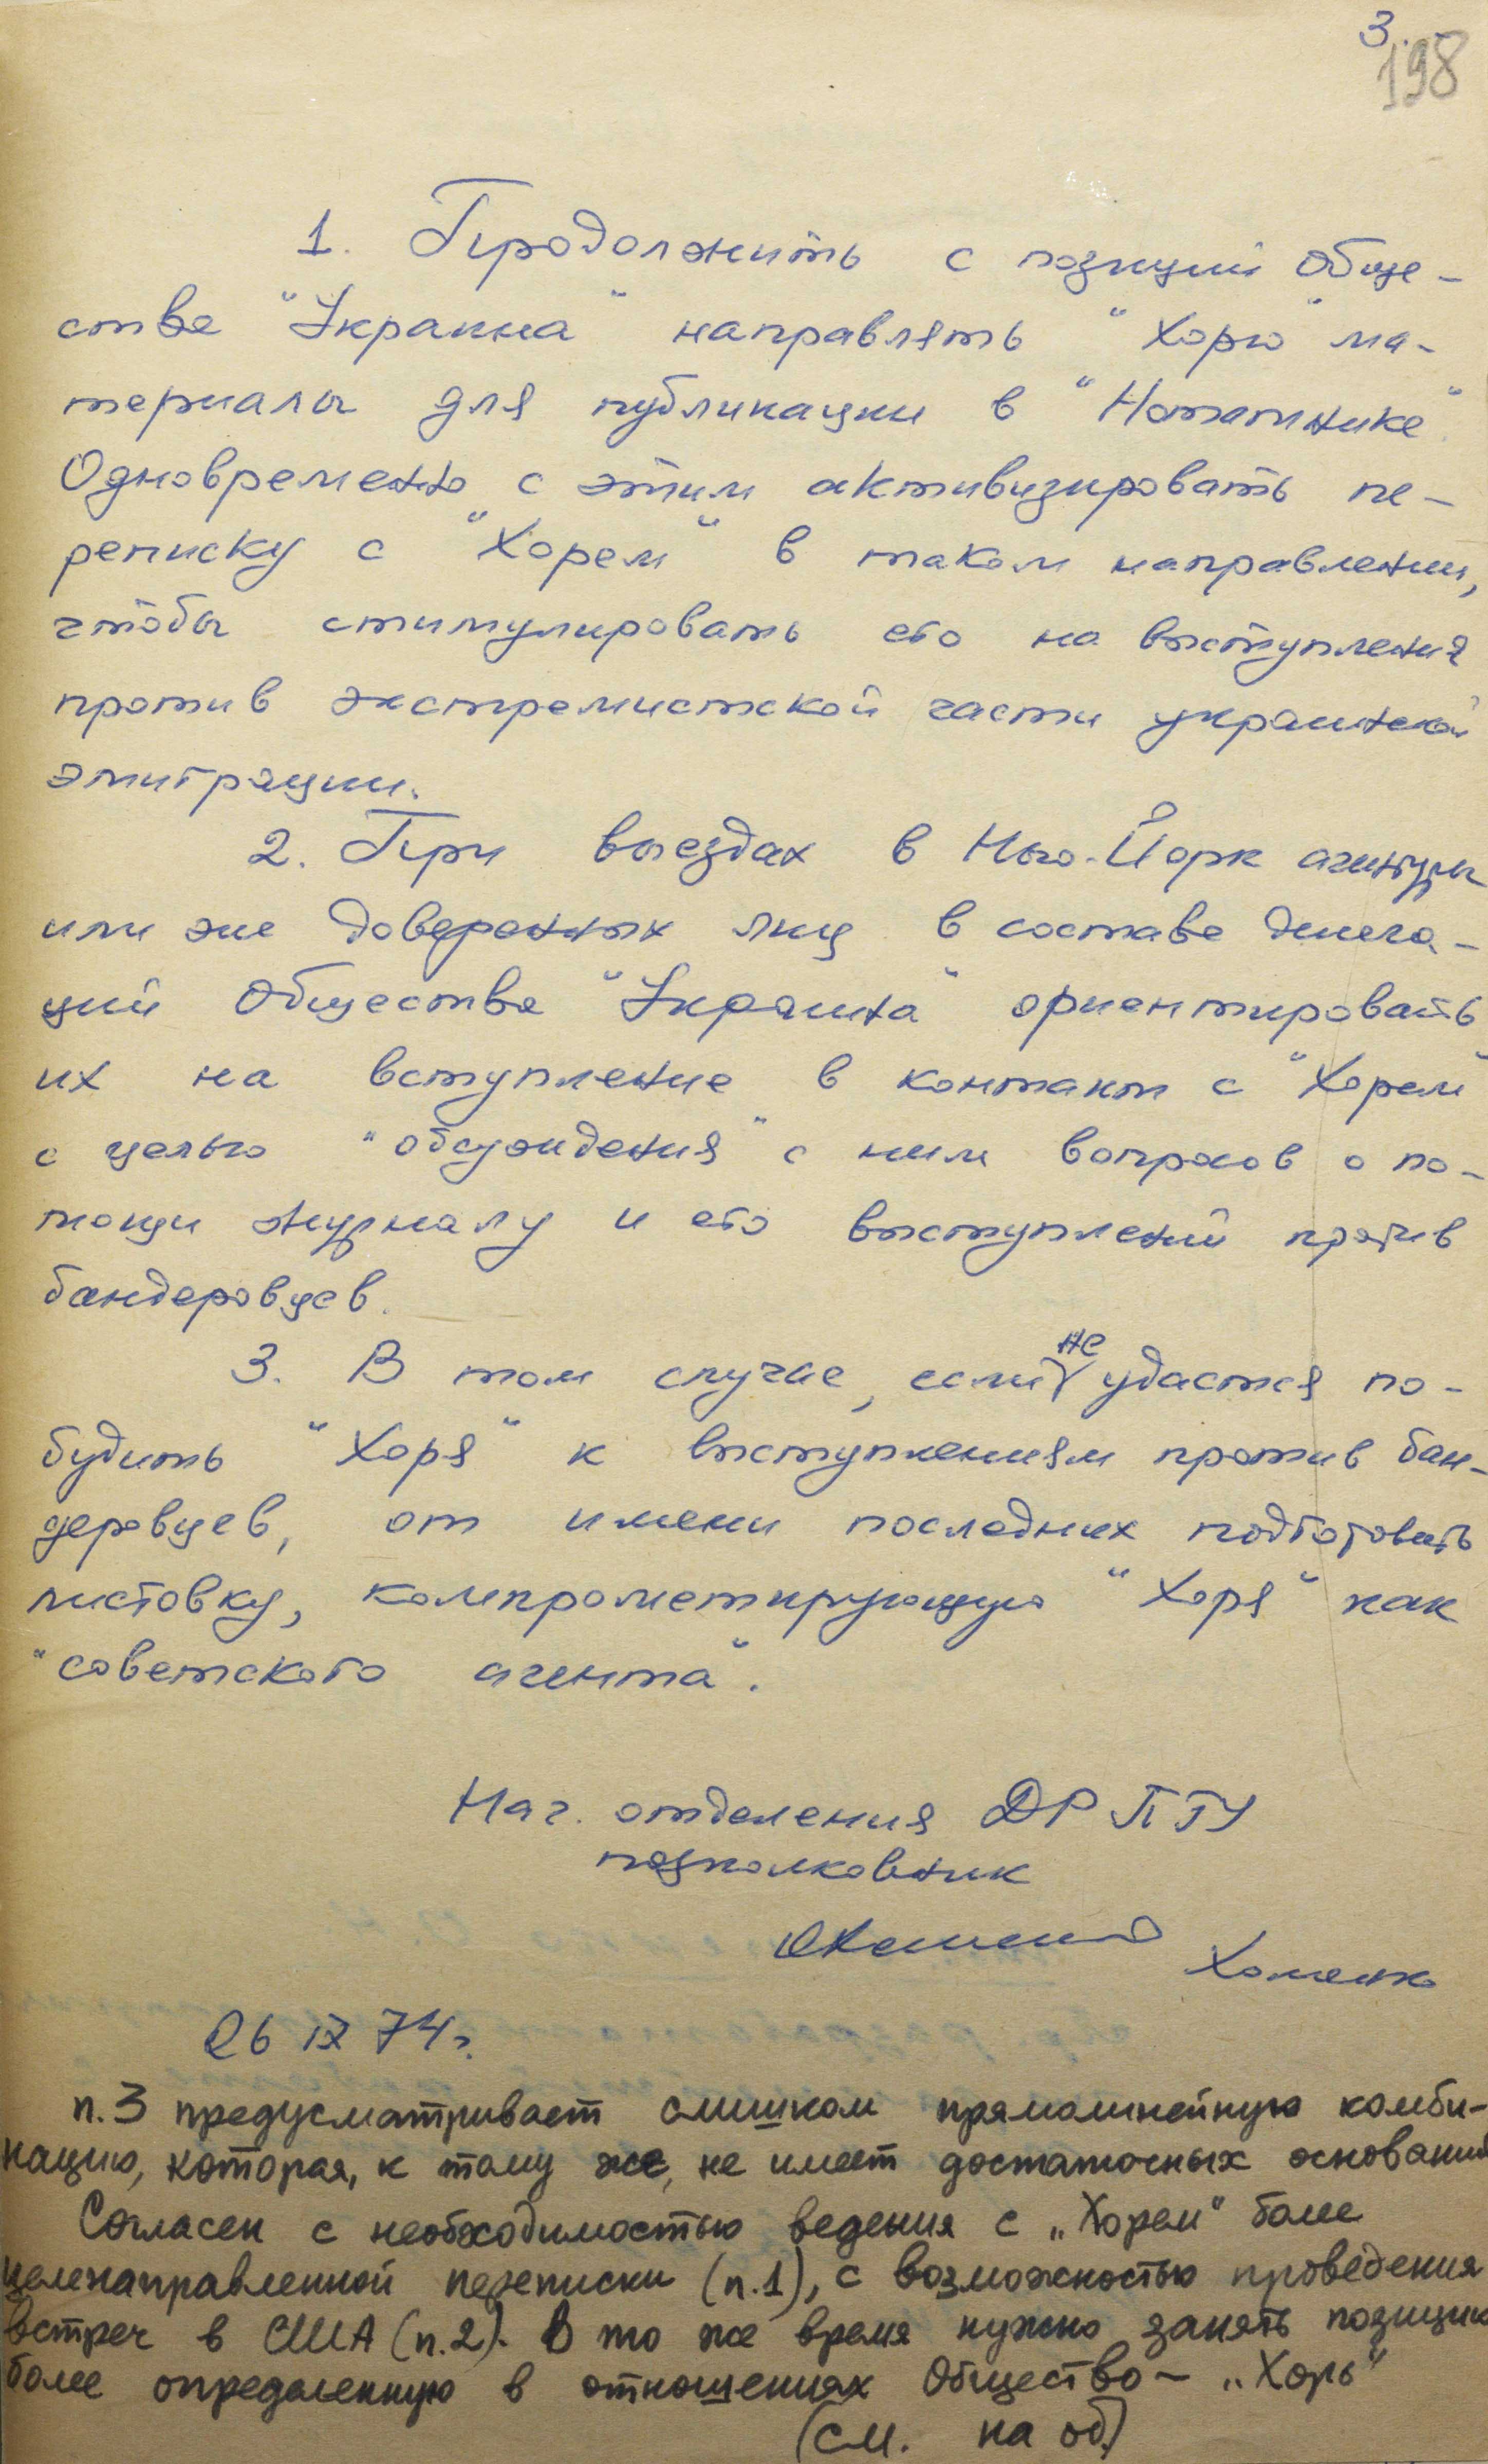 3.
198
1. Продолжить с позиций Обще-
ства "Украина" направлять "Хорю" ма-
териалы для публикации в "Нотатнике".
Одновременно с этим активизировать пе-
реписку с "Хорем" в таком направлении,
чтобы стимулировать его на выступления
против экстремистской части украинской
эмиграции.
2. При выездах в Нью-Йорк агентуры
или же доверенных лиц в составе делега-
ций Общества "Украина" ориентировать
их на вступление в контакт с "Хорем"
с целью "обсуждения" с ним вопросов о по-
мощи журналу и его выступлений против
бандеровцев.
3. В том случае, если не удастся по-
будить "Хоря" к выступлениям против бан-
деровцев, от имени последних подготовить
листовку, компрометирующую "Хоря" как
"советского агента".
Нач. отделения ДР ПГУ
подполковник
Хоменко
26 IX 74 г.
п.3 предусматривает слишком прямолинейную комби-
нацию, которая, к тому же, не имеет достаточных оснований
Согласен с необходимостью ведения с „Хорем" более
целенаправленной переписки (п.1), с возможностью проведения
встреч в США (п.2). В то же время нужно занять позицию
более определенную в отношениях Общество – „Хорь"
(см. на об.)